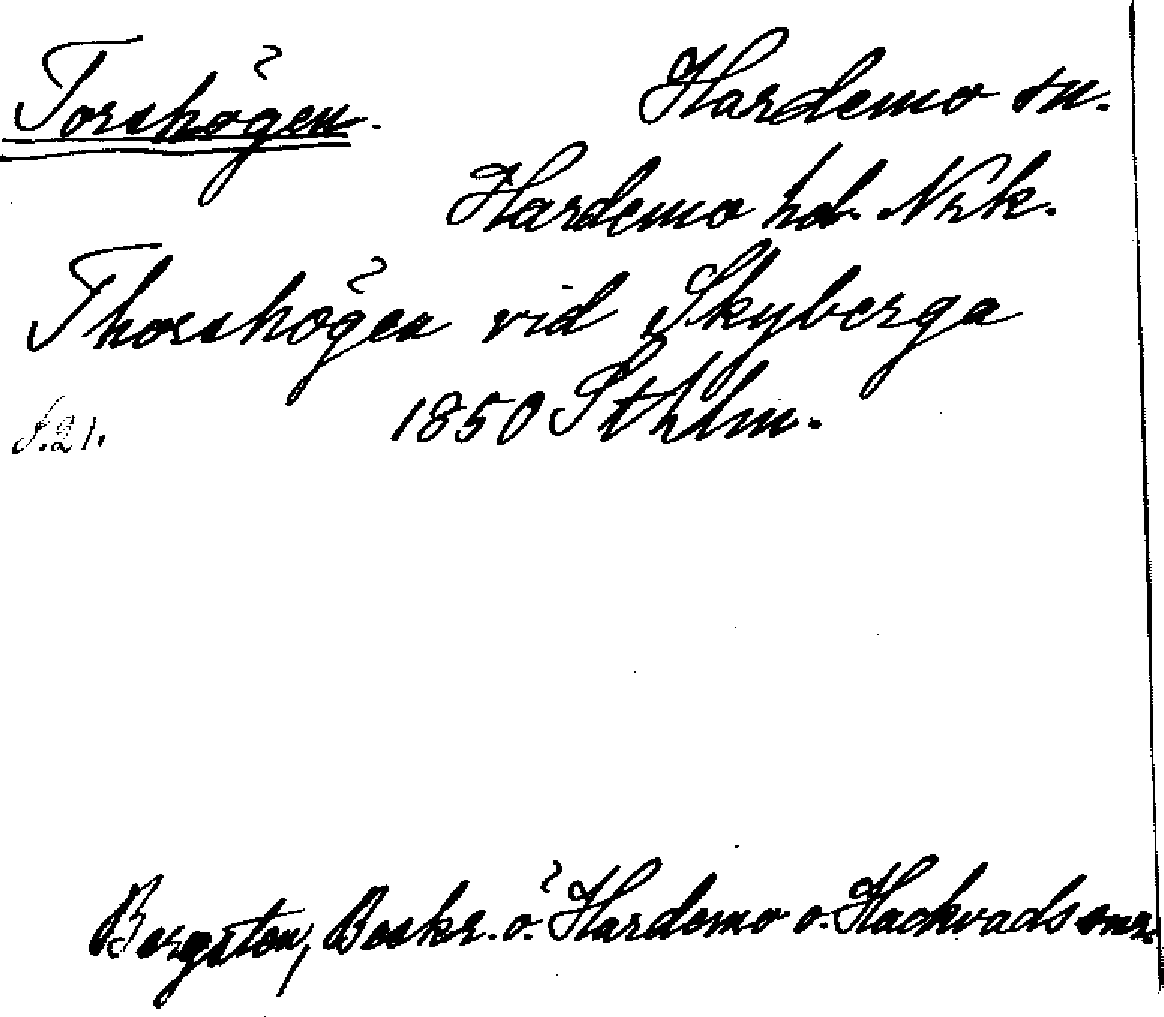 Torshögen. Hardemo sn.
Hardemo hd. Nrk.
Thorshögen vid Skyberga
S. 21. 1850 Sthlm.
Bergsten, Beskr. ö. Hardemo o. Hackvads snr.